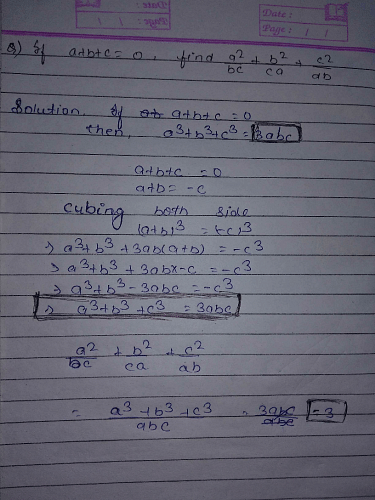 Date :
Page :
Q) If a+b+c = 0, find a²/bc + b²/ca + c²/ab
Solution. If a+b+c = 0
then, a³+b³+c³ = 3abc
a+b+c = 0
a+b = -c
Cubing both side
(a+b)³ = (-c)³
⇒ a³+b³ + 3ab(a+b) = -c³
⇒ a³+b³ + 3ab×-c = -c³
⇒ a³+b³ - 3abc = -c³
⇒ a³+b³+c³ = 3abc
a²/bc + b²/ca + c²/ab
= a³+b³+c³/abc = 3abc/abc = 3